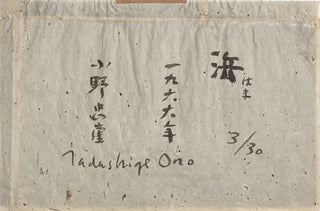 浜
はま
一九六六年
小野忠重
3/30
Tadashige Ono